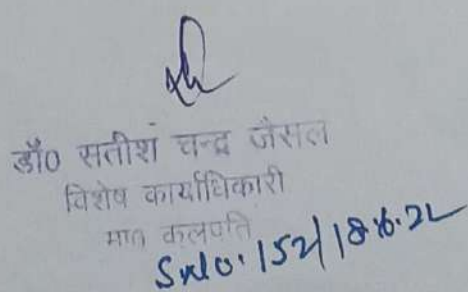 डॉ0 सतीश चन्द्र जैसल
विशेष कार्याधिकारी
मा0 कुलपति
152/18.6.22